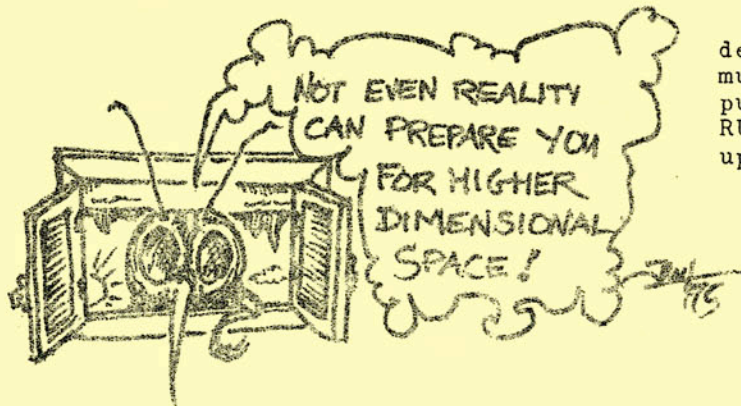 NOT EVEN REALITY
CAN PREPARE YOU
FOR HIGHER
DIMENSIONAL
SPACE!
de
mu
pu
RU
up